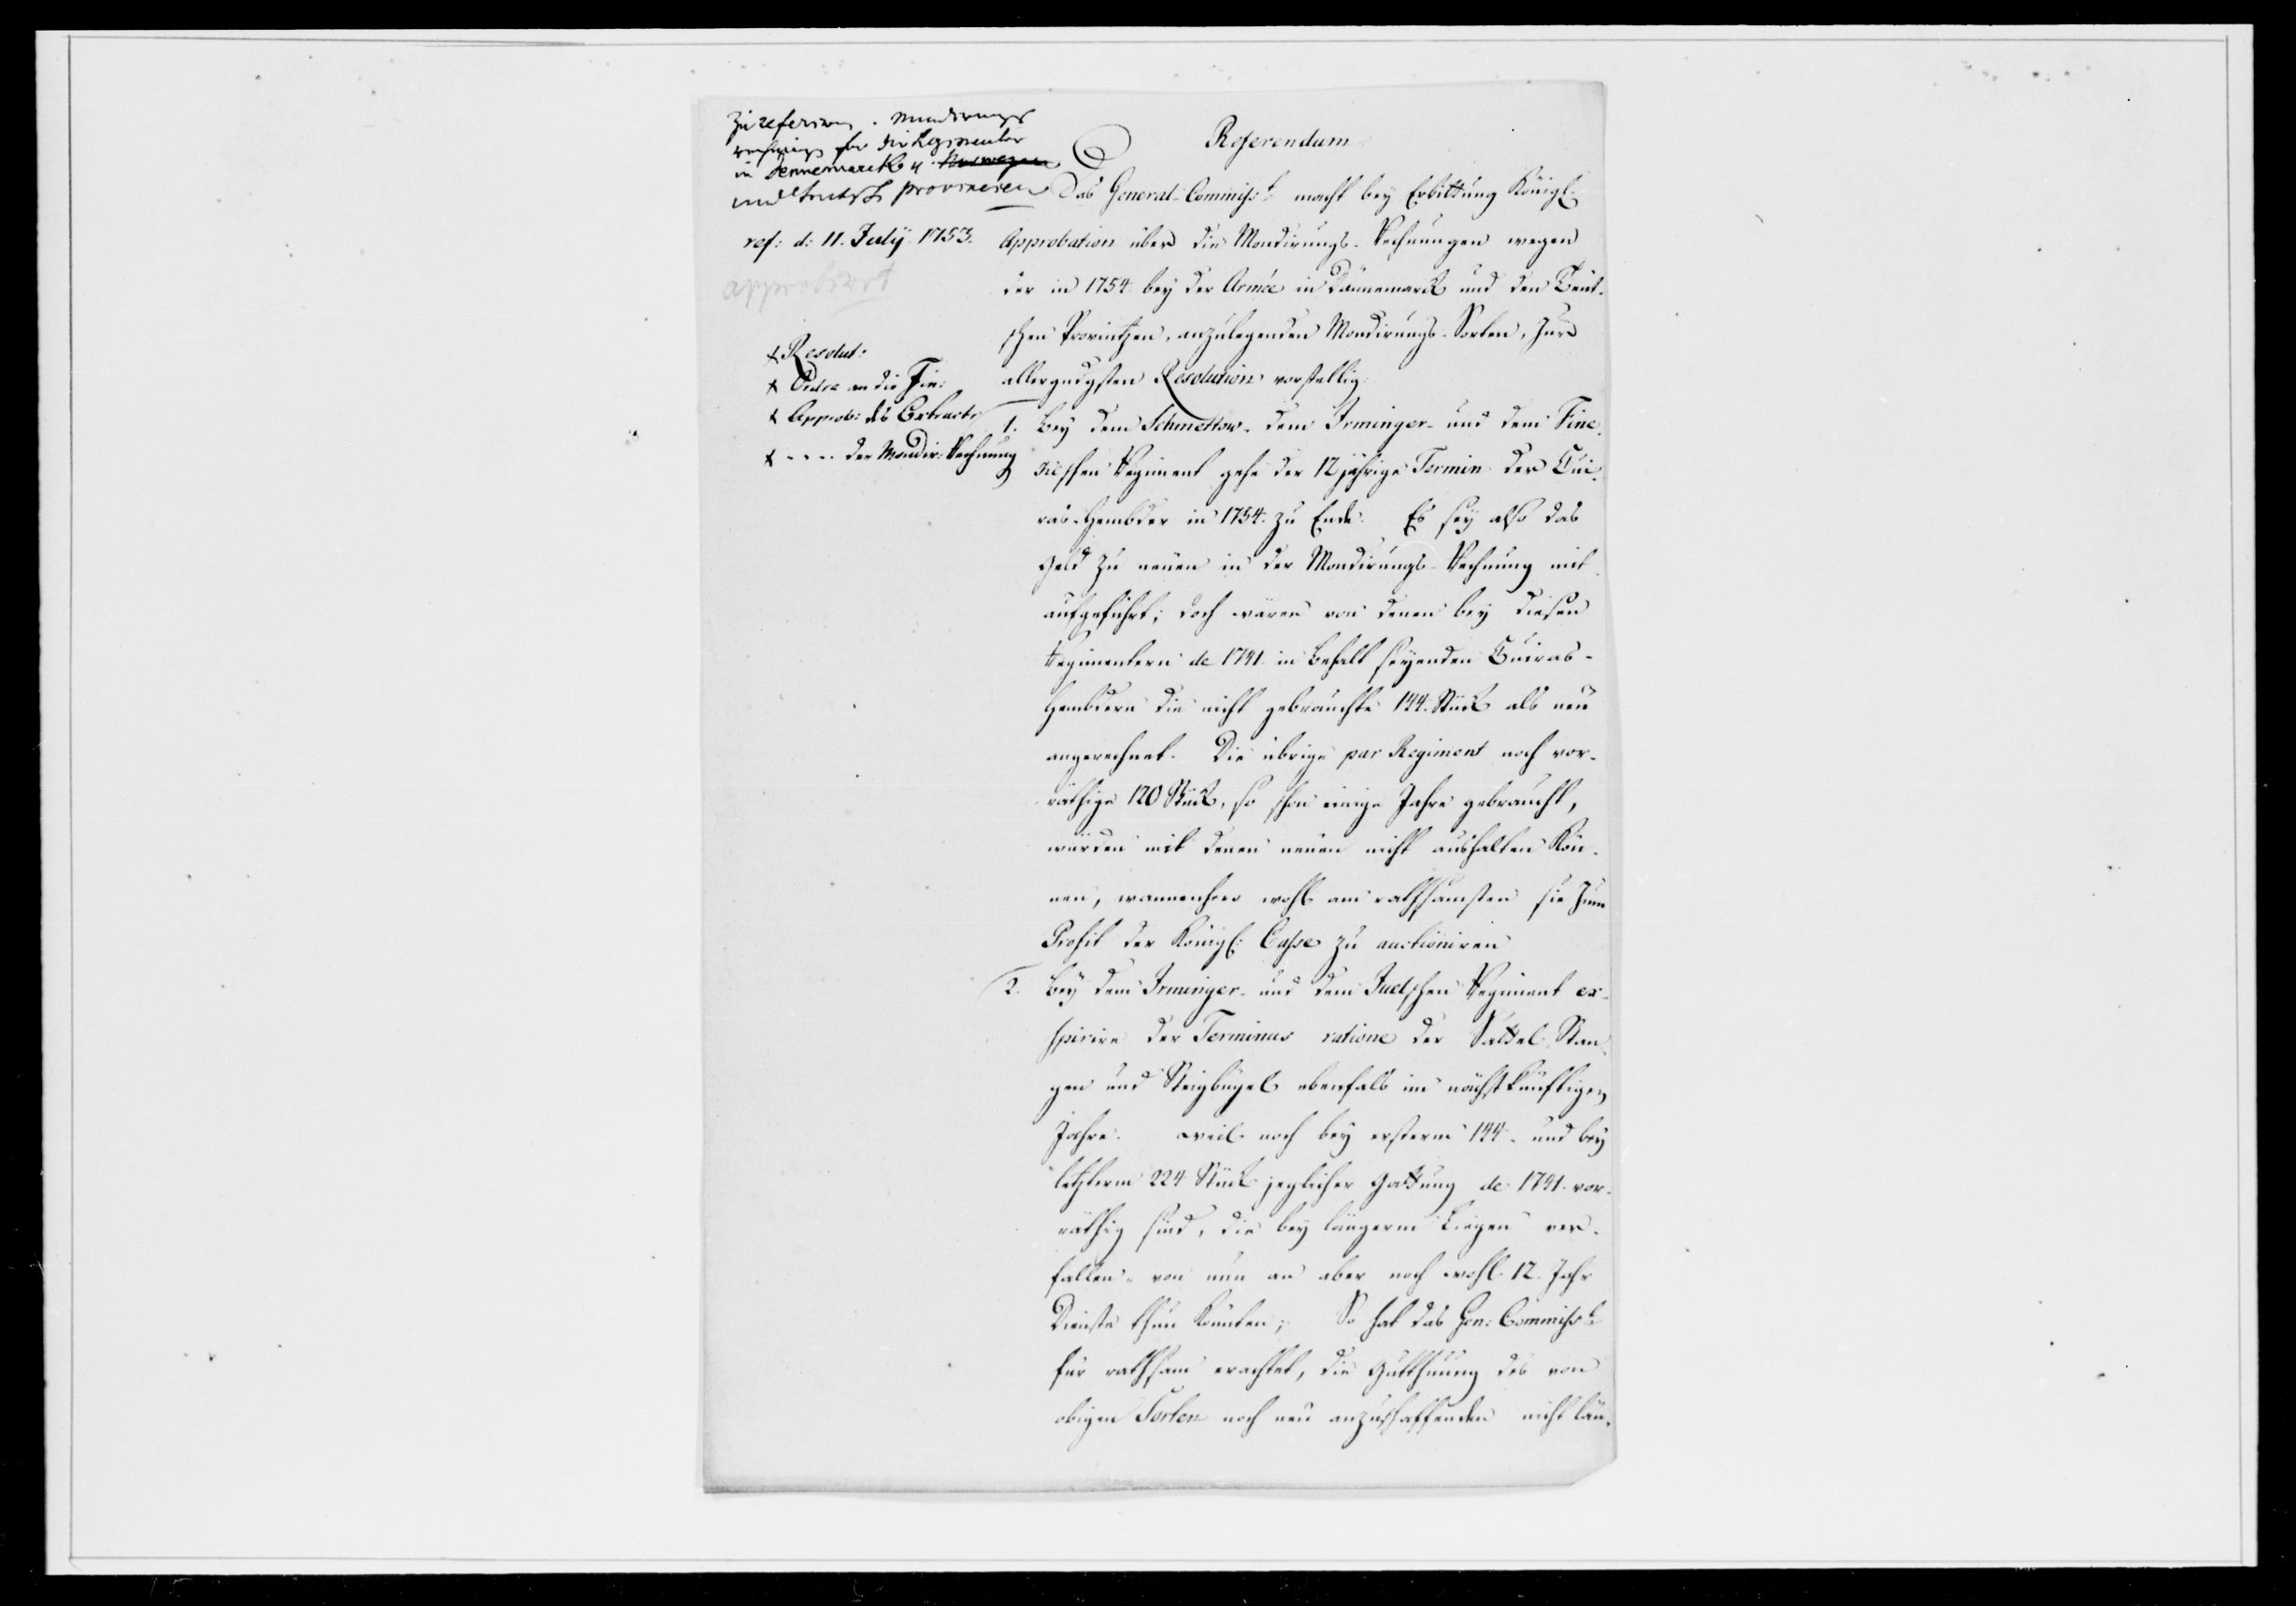 zu referiren . Mundirungs
rechnungs for die Regimenter
in Dennemarck u Norwegen
und teutsche provincien
ref: d: 11. Julÿ 1753.
approbirt
+ Resolut:
+ Ordre an die Fin:
+ Approb: des Extracts
+ - - - - der Mondir: Rechnung
Referendum
Das General-Commisst. macht bey Erbittung Königl:
Approbation über die Mondirungs-Rechnungen wegen
der in 1754. bey der Armée in Dännemarck und den Teut-
schen Provintzen, anzulegenden Mondirungs-Sorten, zur
allergndgsten Resolution vorstellig:
1. Bey dem Schmettow- dem Irminger- und dem Fine-
ckeschen Regiment gehe der 12jährige Termin der Cui-
ras-Hembder in 1754. zu Ende. Es sey also das
Geld zu neuen in der Mondirungs-Rechnung mit
aufgeführt; doch wären von denen bey diesen
Regimentern de 1741. in Behalt seyenden Cuiras-
Hembdern die nicht gebrauchte 144. Stück als neu
angerechnet. Die übrige par Regiment noch vor-
räthige 120 Stück, so schon einige Jahre gebraucht,
würden mit denen neuen nicht aushalten kön-
nen, wannenhero wohl am rathsamsten sie zum
Profit der Königl: Casse zu auctioniren
2. Bey dem Irminger- und dem Juelschen Regiment ex-
spirire der Terminus ratione der Sattel Stan-
gen und Steigbügel ebenfals im nächstkünftigen
Jahre. weil noch bey ersterm 144. und bey
letzterm 224 Stück jeglicher Gattung de 1741. vor-
räthig sind, die bey längerm Liegen ver-
fallen- von nun an aber noch wohl 12. Jahr
Dienste thun könten; So hat das Gen: Commisst.
für rathsam erachtet, die Gutthuung des von
obigen Sorten noch neu anzuschaffenden nicht län-